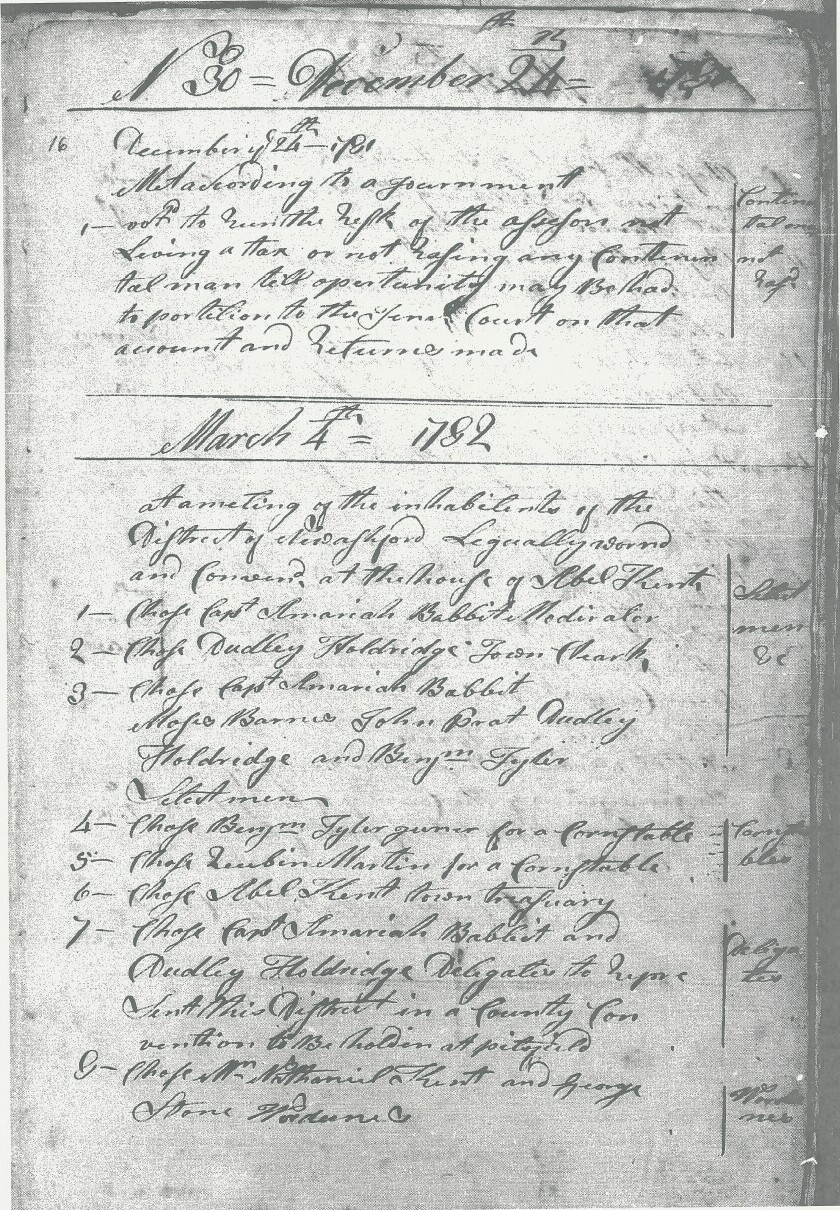 N 30 = December 24th =
16
December ye 24th — 1781
Met according to a gournment
1 — votd to Run the Resk of the assesors not
Leving a tax or not Rasing any Continen
tal man till opertunity may Be had
to portition to the Court on that
account and Returnes made
Contin
tal
not
Rasd
March 4th = 1782
at a meting of the inhabitents of the
District of Newashford Legually wornd
and Convend at the house of Abel Kent
1 — Chose Capt Amariah Babbit Moderator
2 — Chose Dudley Holdridge Town Cleark
3 — Chose Capt Amariah Babbit
Moses Barnes John Prat Dudley
Holdridge and Benjm Tyler
Selectmen
Select
men
&c
4 — Chose Benjm Tyler guner for a Cornstable
5 — Chose Reubin Martin for a Cornstable
Corns
bles
6 — Chose Abel Kent town tresuary
7 — Chose Capt Amariah Babbit and
Dudley Holdridge Delegates to Repre
Sent this District in a County Con
vention to Be holden at pitsfield
Deliga
tes
8 — Chose Mr Nathaniel Kent and George
Stone Wordenes
Worde
nes